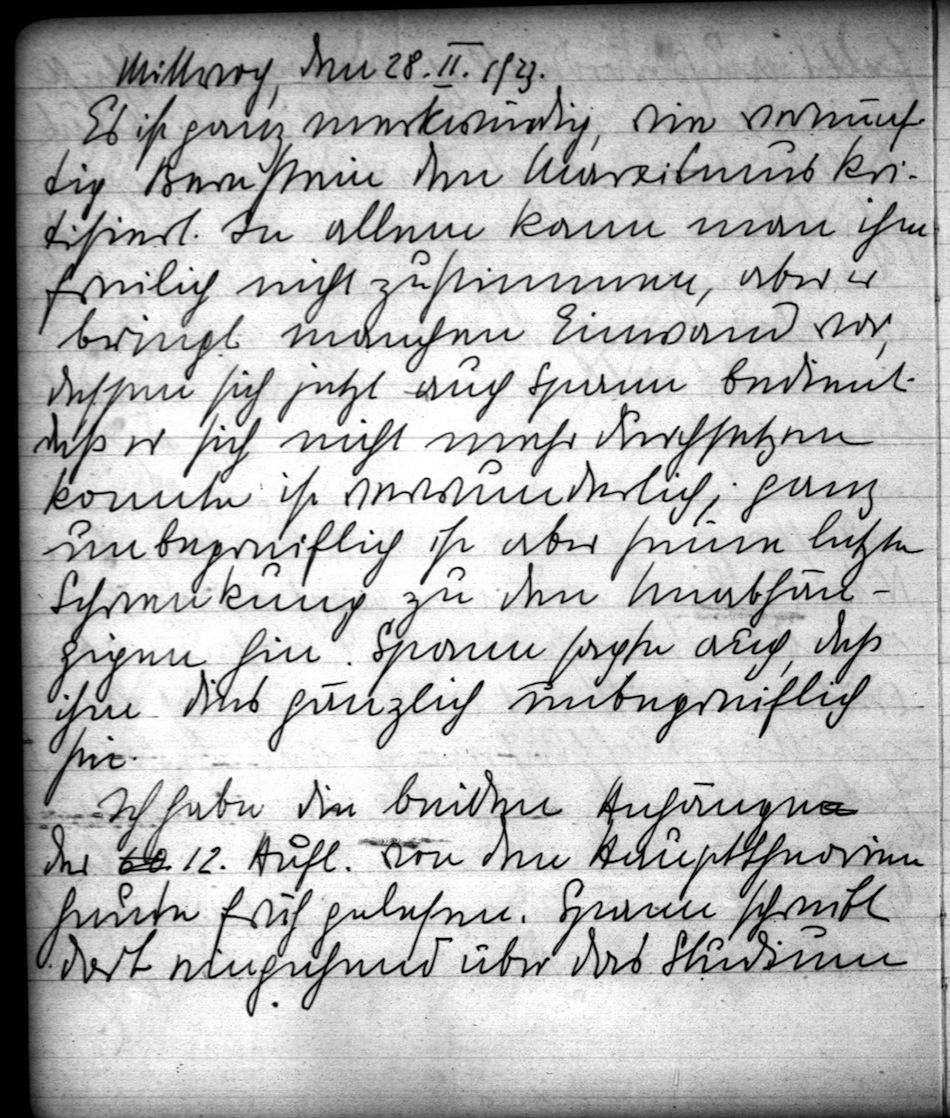 Mittwoch, den 28. II. 1923.
Es ist ganz merkwürdig, wie vernünf-
tig Bernstein den Marxismus kri-
tisiert. In allem kann man ihm
freilich nicht zustimmen, aber er
bringt manchen Einwand vor,
dessen sich jetzt auch Spann bedient.
daß er sich nicht mehr durchsetzen
konnte ist verwunderlich; ganz
unbegreiflich ist aber seine letzte
Schwenkung zu den Unabhän-
gigen hin. Spann sagte auch, daß
ihm dies gänzlich unbegreiflich
sei.
Ich habe die beiden Anhänge
der 12. Aufl. von den Haupttheorien
heute früh gelesen. Spann schreibt
dort eingehend über das Studium